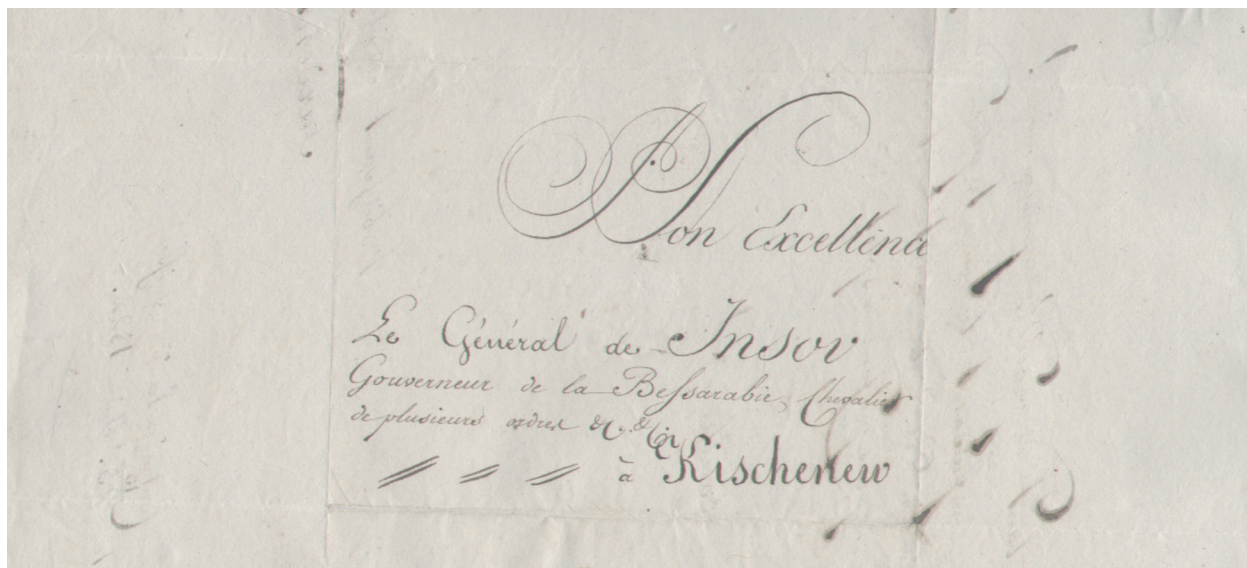 Son Excellence
Le Général de Insov
Gouverneur de la Bessarabie, Chevalier
de plusieurs ordres &c. &c.
à Kischenew